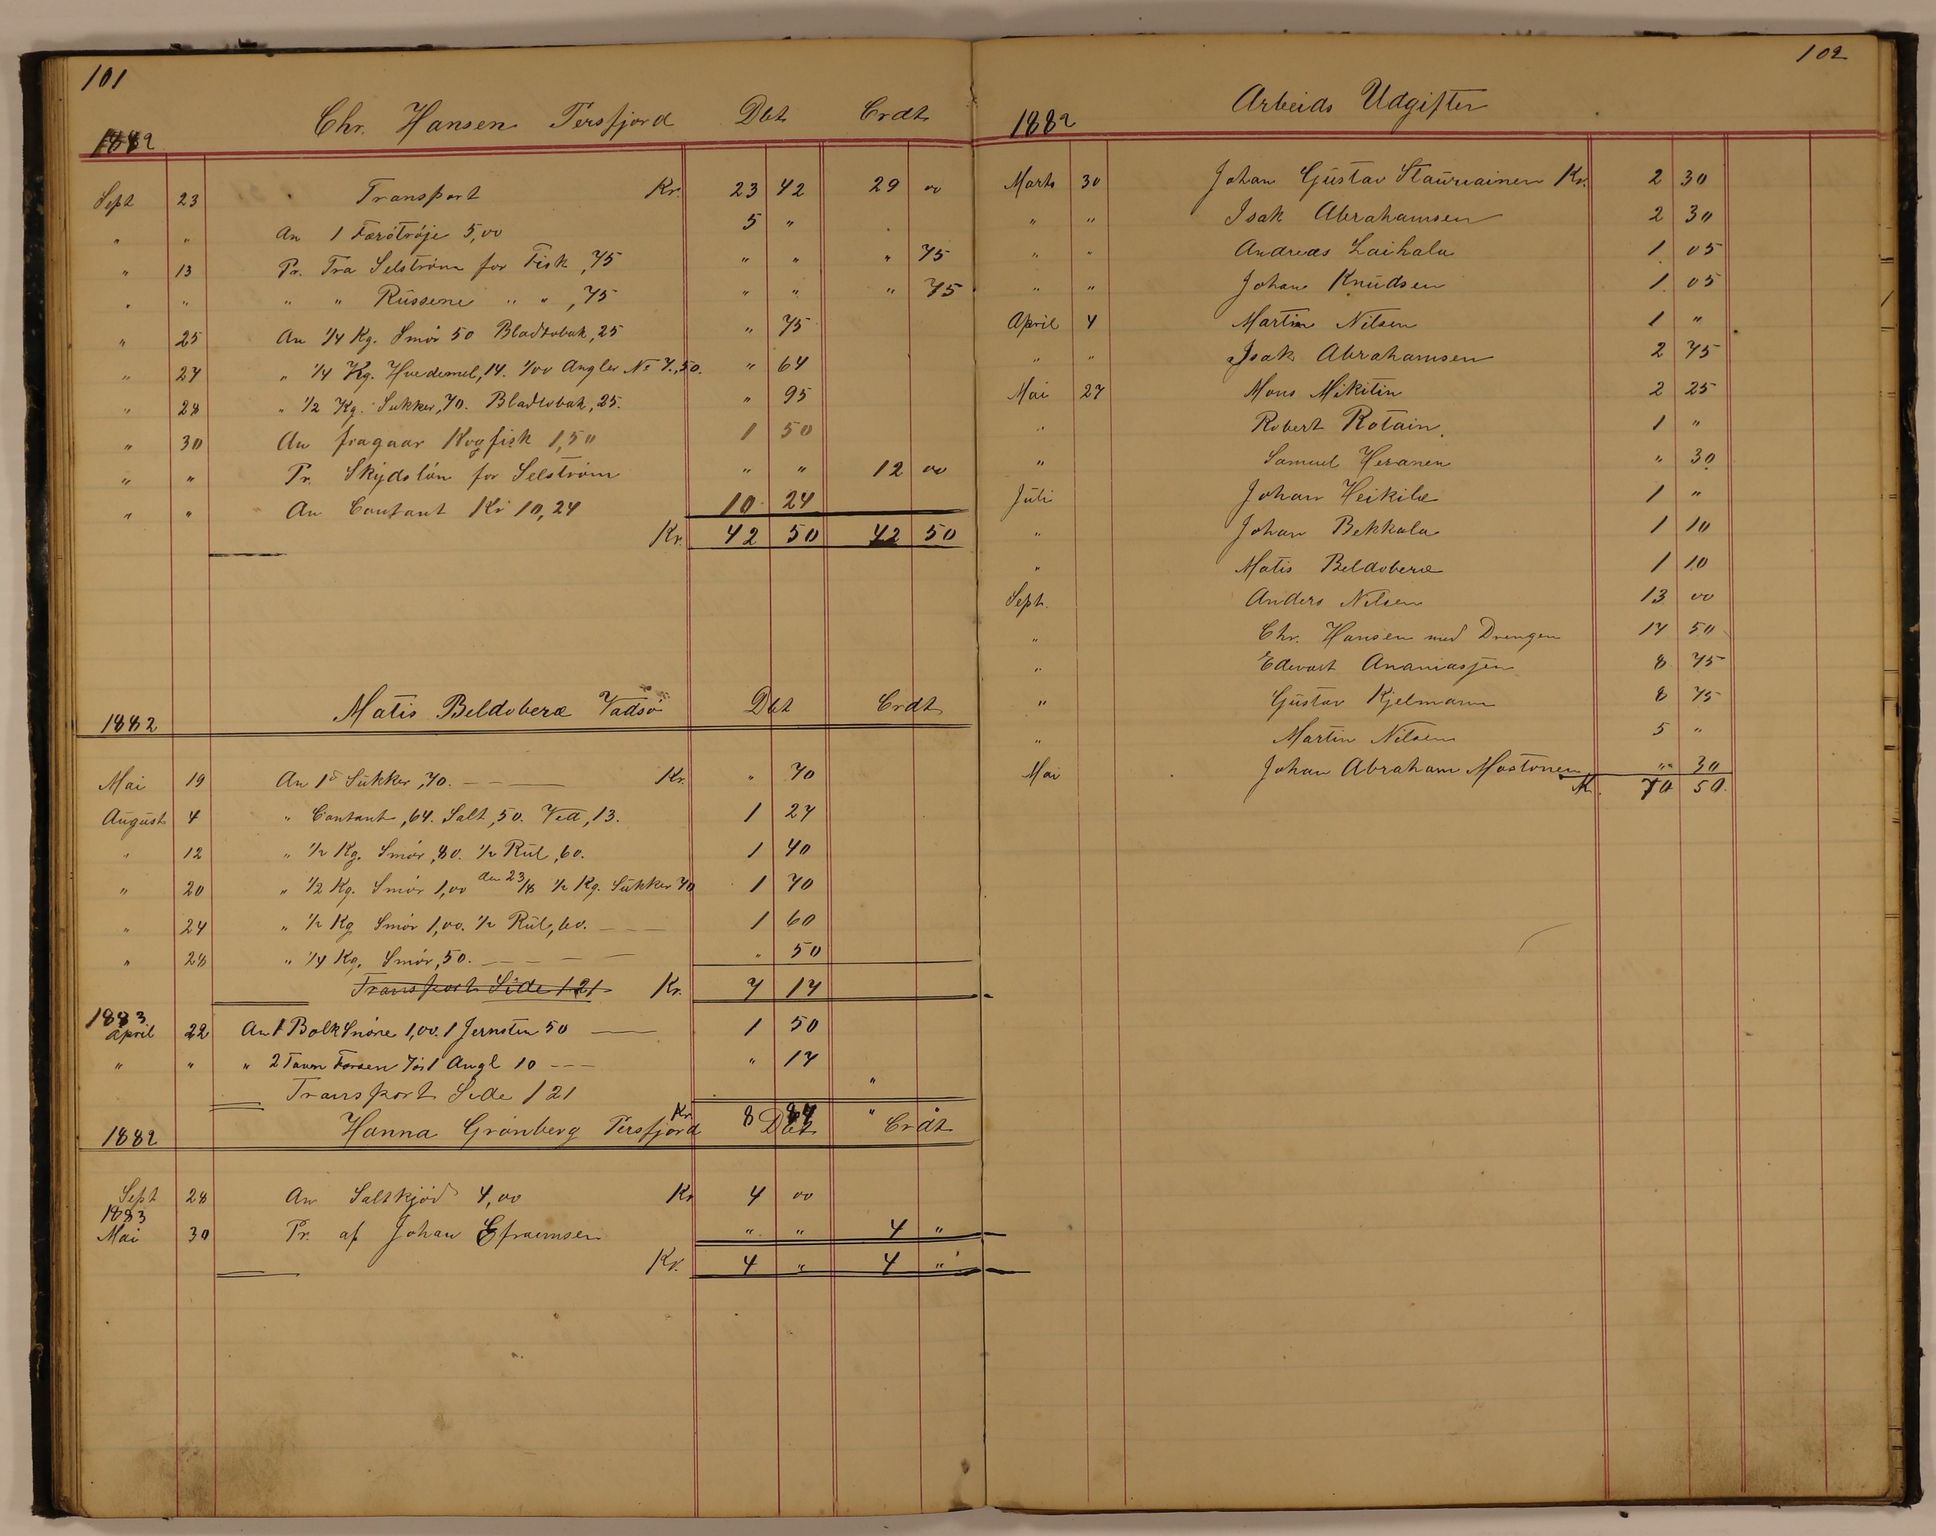 101
Chr. Hansen Persfjord Dbt Crdt
1882
Sept 23 Transport Kr. 23 42 29 00
" " An 1 Færötröje 5,00 5 "
" 13 Pr. Fra Selström for Fisk ,75 " " " 75
" " " " Russene " " ,75 " " " 75
" 25 An 1/4 Kg. Smör 50 Bladtobak ,25 " 75
" 27 " 1/4 Kg. Hvedemel ,14. 1/00 Angler No 7. ,50. " 64
" 28 " 1/2 Kg. Sukker ,70. Bladtobak ,25. " 95
" 30 An fragaar Kogfisk 1,50 1 50
" " Pr. Skydslön for Selström " " 12 00
" " An Contant Kr 10,24 10 24
Kr. 42 50 42 50
Matis Beldoberæ Vadsö Dbt Crdt
1882
Mai 19 An 1 Sukker ,70. Kr. " 70
August 4 " Contant ,64. Salt ,50. Ved ,13. 1 27
" 12 " 1/2 Kg. Smör ,80. 1/2 Rul ,60. 1 40
" 20 " 1/2 Kg. Smör 1,00 den 23/8 1/2 Kg. Sukker 70 1 70
" 24 " 1/2 Kg Smör 1,00. 1/2 Rul ,60. 1 60
" 28 " 1/4 Kg. Smör ,50. " 50
Transport Side 121 Kr. 7 17
1883
April 22 An 1 Bolk Snöre 1,00. 1 Jernsten 50 1 50
" " " 2 Favn Forsen 7 1 Angl 10 " 17
Transport Side 121 "
Kr. 8 84 "
1882 Hanna Grönberg Persfjord Dbt Crdt
Sept 28 An Saltkjöd 4,00 Kr 4 00
1883
Mai 30 Pr. af Johan Efraimsen " " 4 "
Kr. 4 " 4 "
102
Arbeids Udgifter
1882
Marts 30 Johan Gustav Stauruainen Kr. 2 30
" " Isak Abrahamsen 2 30
" " Andreas Laihala 1 05
" " Johan Knudsen 1 05
April 4 Martin Nilsen 1 "
" " Isak Abrahamsen 2 75
Mai 27 Mons Mikitin 2 25
" Robert Rotain. 1 "
" Samuel Heranen " 30
Juli Johan Heikilæ 1 "
" Johan Bekkala 1 10
" Matis Beldoberæ 1 10
Sept. Anders Nilsen 13 00
" Chr. Hansen med Drengen 17 50
" Edevart Ananiassen 8 75
" Gustav Kjelmann 8 75
" Martin Nilsen 5 "
Mai Johan Abraham Mastonen " 30
Kr. 70 50